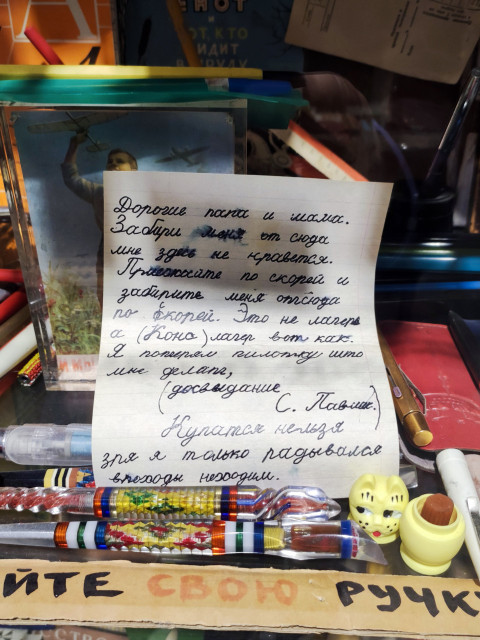 ЕНОТ
И
ТОТ, КТО
СИДИТ
В ПРУДУ
Дорогие папа и мама.
Забири меня от сюда
мне здесь не нравется.
Приезжайте по скорей и
забирите меня отсюда
по скорей. Это не лагерь
а (Конс) лагер вот как.
Я потерял пилотку што
мне делать,
(досвидание
С. Павлик.)
Купатся нельзя
зря я только радывался
впоходы неходим.
ЙТЕ СВОЮ РУЧКУ